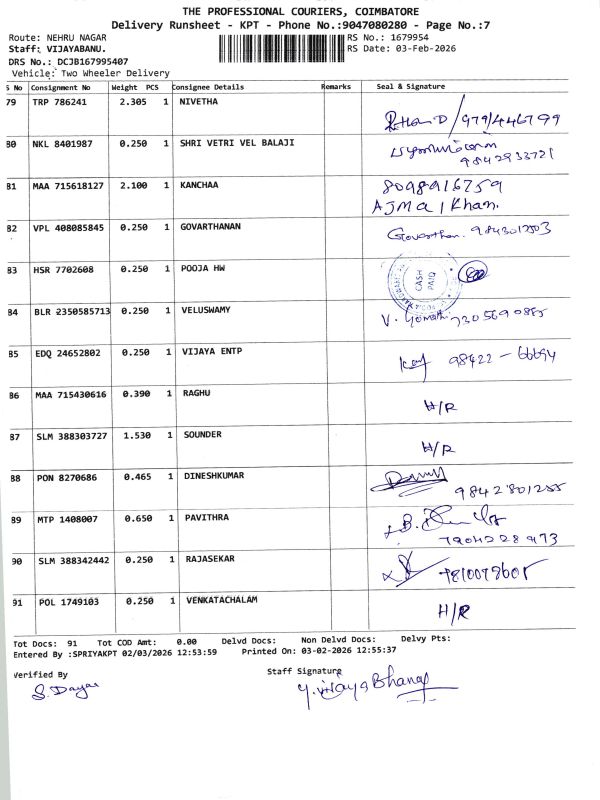 THE PROFESSIONAL COURIERS, COIMBATORE
Delivery Runsheet - KPT - Phone No.:9047080280 - Page No.:7
Route: NEHRU NAGAR
RS No.: 1679954
Staff: VIJAYABANU.
RS Date: 03-Feb-2026
DRS No.: DCJB167995407
Vehicle: Two Wheeler Delivery
S No Consignment No Weight PCS Consignee Details Remarks Seal & Signature
79 TRP 786241 2.305 1 NIVETHA
80 NKL 8401987 0.250 1 SHRI VETRI VEL BALAJI
9842933721
81 MAA 715618127 2.100 1 KANCHAA 8098916759
AJMal Khan.
82 VPL 408085845 0.250 1 GOVARTHANAN Govarthan. 9843012503
83 HSR 7702608 0.250 1 POOJA HW CASH PAID
84 BLR 2350585713 0.250 1 VELUSWAMY V. Gomathi
85 EDQ 24652802 0.250 1 VIJAYA ENTP 98422 - 66694
86 MAA 715430616 0.390 1 RAGHU H/R
87 SLM 388303727 1.530 1 SOUNDER H/R
88 PON 8270686 0.465 1 DINESHKUMAR 9842801255
89 MTP 1408007 0.650 1 PAVITHRA
90 SLM 388342442 0.250 1 RAJASEKAR
91 POL 1749103 0.250 1 VENKATACHALAM H/R
Tot Docs: 91 Tot COD Amt: 0.00 Delvd Docs: Non Delvd Docs: Delvy Pts:
Entered By :SPRIYAKPT 02/03/2026 12:53:59 Printed On: 03-02-2026 12:55:37
Verified By
Staff Signature
S. Dayai
Y. Vijaya Bhanu